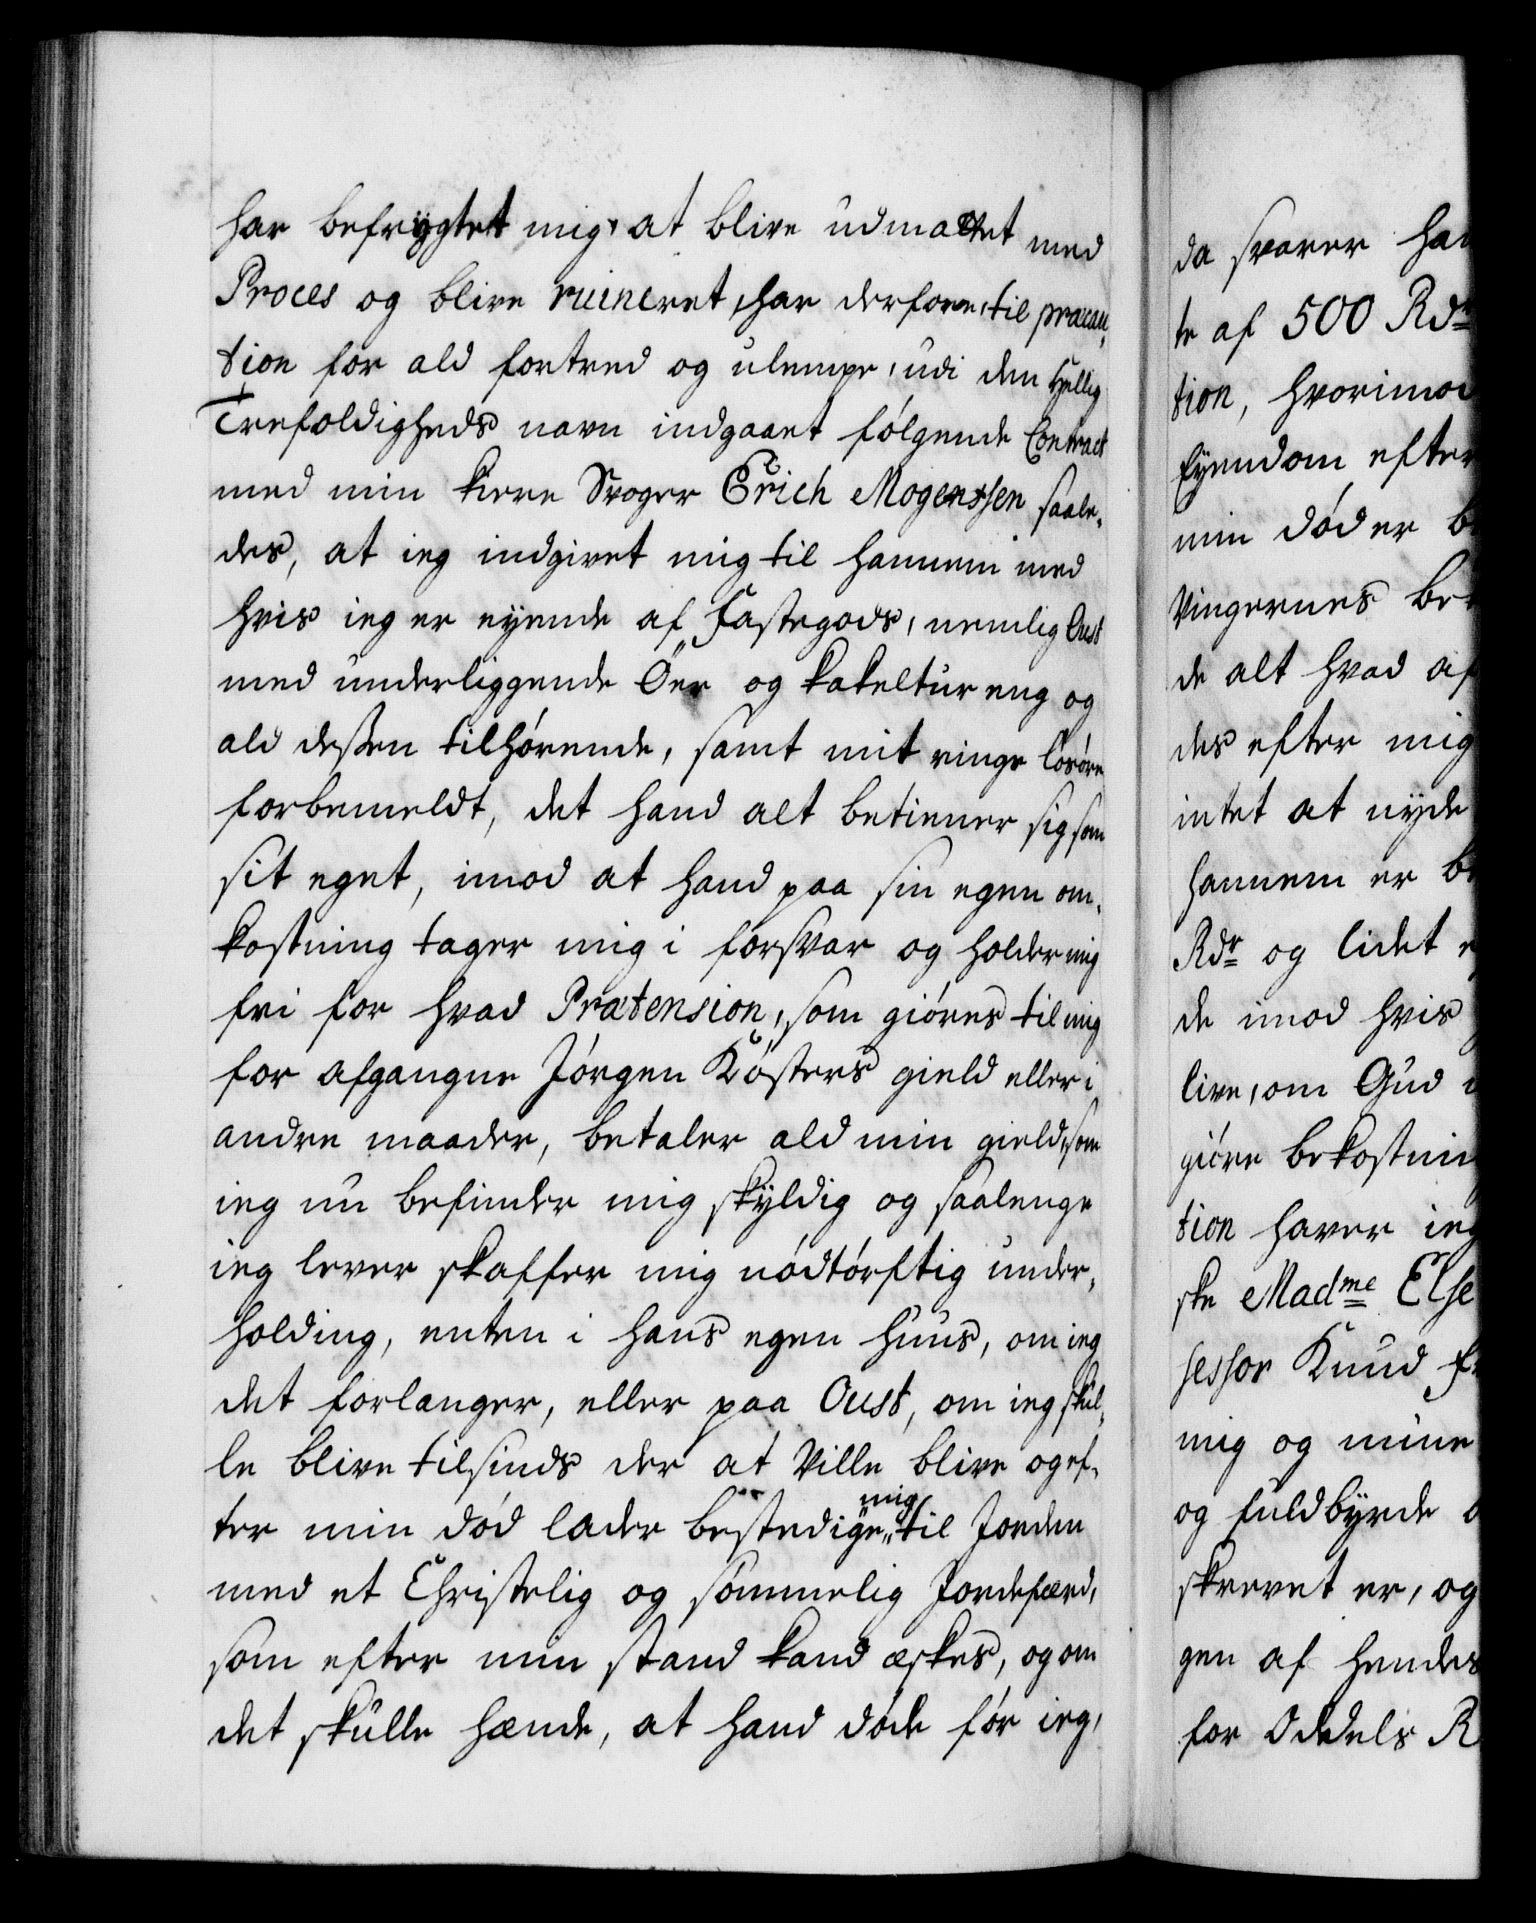 har befrygtet mig at blive udmattet med
Proces og blive ruineret, har derfore, til præcau-
tion for ald fortred og ulempe, udi den Hellig
Trefoldigheds navn indgaaet følgende Contract
med min kiere Svoger Erich Mogenssen saale-
des, at ieg indgivet mig til hannem med
hvis ieg er eyende af Fastegods, nemlig Oust
med underliggende Öer og Kakeltur eng og
ald dessen tilhørende, samt mit ringe løsøre
forbemeldt, det hand alt betiener sig som
sit eget, imod at hand paa sin egen om-
kostning tager mig i forsvar og holder mig
fri for hvad Prætension, som giøres til mig
for afgangne Jørgen Kösters gield eller i
andre maader, betaler ald min gield, som
ieg nu befinder mig skyldig og saalenge
ieg lever skaffer mig nødtørftig under-
holding, enten i hans egen huus, om ieg
det forlanger, eller paa Oust, om ieg skul-
le blive tilsinds der at ville blive og ef-
ter min død lader bestedige mig til Jorden
med et Christelig og sømmelig Jordefærd,
som efter min stand kand æskes, og om
det skulle hænde, at hand døde før ieg,
da svarer han
te af 500 Rdr
tion, hvorimod
Eyendom efter
min død er
Vingernes
de alt hvad af
des efter mig
intet at nyde
hannem er
Rdr og lidet
de imod hvis
live, om Gud
giøre bekostnin
tion haver ieg
ske Madme Else
sessor Knud
mig og mine
og fuldbyrde
skrevet er, og
gen af hendes
for Oddels R